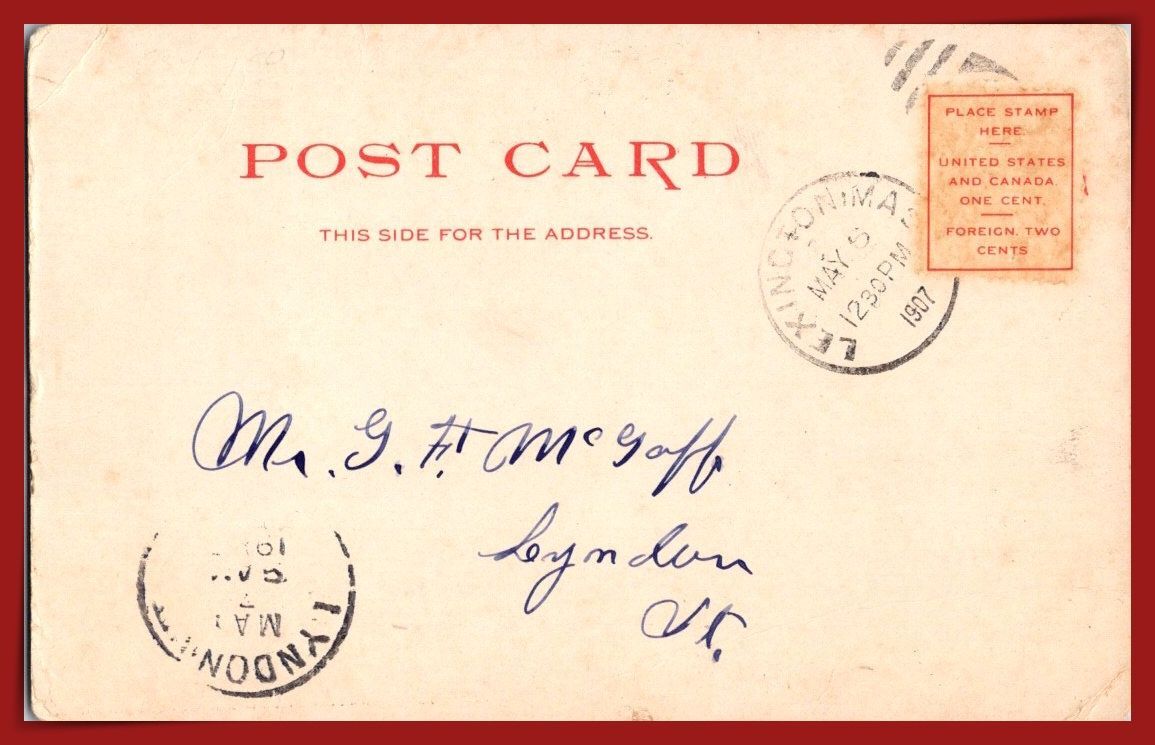 POST CARD
THIS SIDE FOR THE ADDRESS.
PLACE STAMP
HERE.
UNITED STATES
AND CANADA.
ONE CENT.
FOREIGN. TWO
CENTS
LEXINGTON, MAS
MAY
12 30 PM
1907
Mr. G. H. McGaff
Lyndon
Vt.
LYNDON
MAY